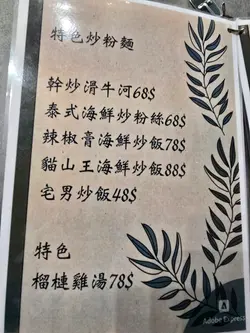 特色炒粉麵
幹炒滑牛河68$
泰式海鮮炒粉絲68$
辣椒膏海鮮炒飯78$
貓山王海鮮炒飯88$
宅男炒飯48$
特色
榴槤雞湯78$
A
Adobe Express